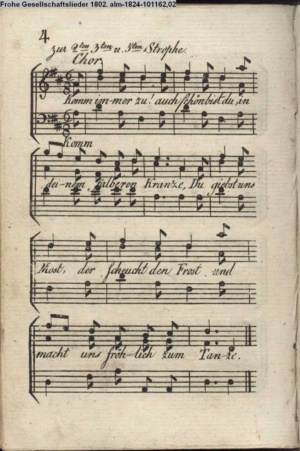 Frohe Gesellschaftslieder 1802. alm-1824-101162,02
4
zur 2ten 3ten u. 4ten Strophe.
Chor.
Komm im-mer zu! auch schön bist du, in
Komm
dei-nem silberen Kranze, Du giebst uns
Most, der scheucht den Frost und
macht uns fröh-lich zum Tan-ze.